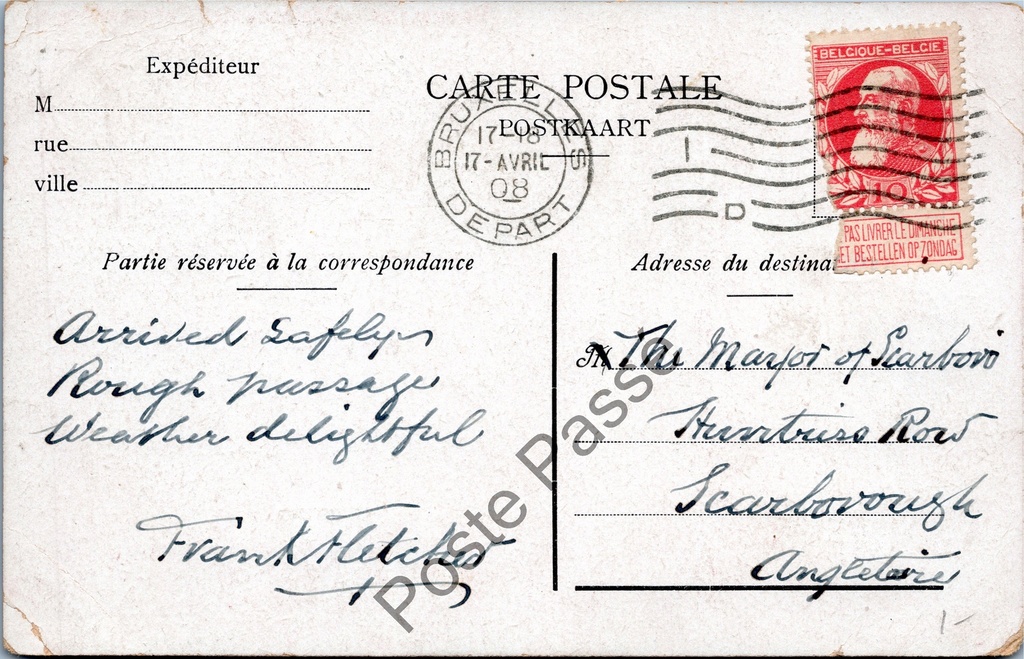 Expéditeur
M
rue
ville
CARTE POSTALE
POSTKAART
BRUXELLES
17-18
17-AVRIL
08
DEPART
I
D
BELGIQUE-BELGIE
10
PAS LIVRER LE DIMANCHE
NIET BESTELLEN OP ZONDAG
Partie réservée à la correspondance
Arrived safely
Rough passage
Weather delightful
Frank Fletcher
Adresse du destina
M The Mayor of Scarboro
Huntriss Row
Scarborough
Angleterre
1-
Poste Passe